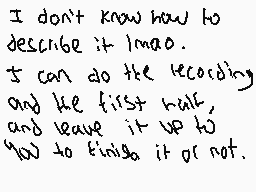 I don't know how to
describe it lmao.
I can do the recording
and the first half,
and leave it up to
you to finish it or not.